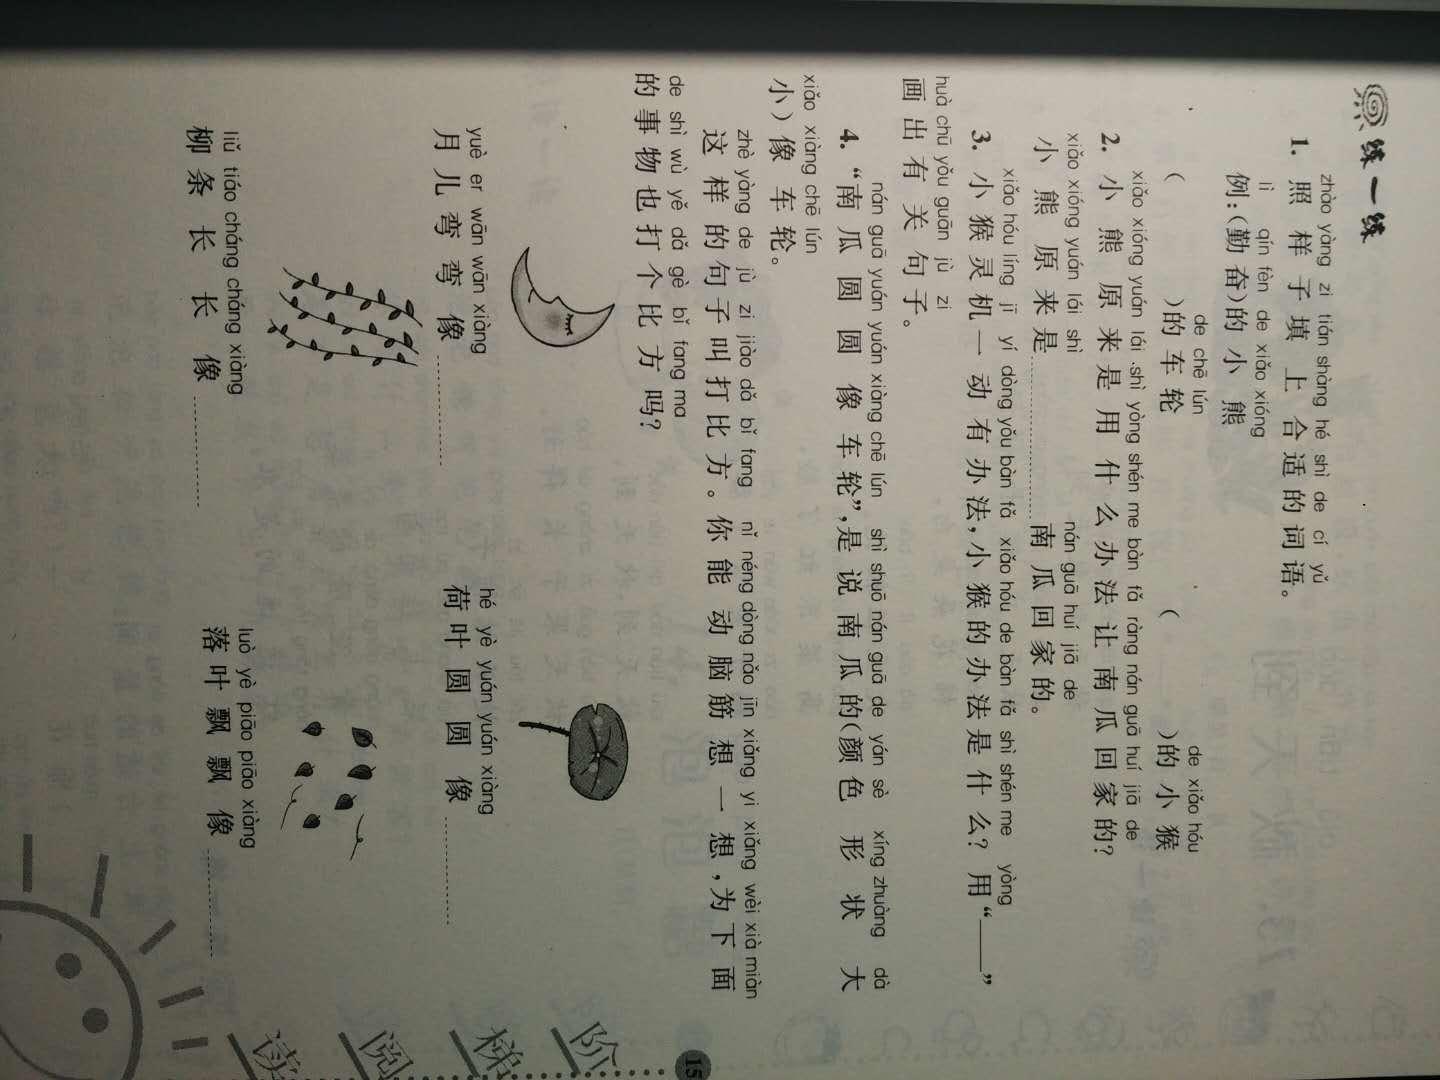 练一练
zhào yàng zi tián shàng hé shì de cí yǔ
1. 照样子填上合适的词语。
lì qín fèn de xiǎo xióng
例:(勤奋)的小熊
de chē lún de xiǎo hóu
( )的车轮 ( )的小猴
xiǎo xióng yuán lái shì yòng shén me bàn fǎ ràng nán guā huí jiā de
2. 小熊原来是用什么办法让南瓜回家的?
xiǎo xióng yuán lái shì nán guā huí jiā de
小熊原来是 南瓜回家的。
xiǎo hóu líng jī yí dòng yǒu bàn fǎ xiǎo hóu de bàn fǎ shì shén me yòng
3. 小猴灵机一动有办法,小猴的办法是什么?用“——”
huà chū yǒu guān jù zi
画出有关句子。
nán guā yuán yuán xiàng chē lún shì shuō nán guā de yán sè xíng zhuàng dà
4. “南瓜圆圆像车轮”,是说南瓜的(颜色 形状 大
xiǎo xiàng chē lún
小)像车轮。
zhè yàng de jù zi jiào dǎ bǐ fang nǐ néng dòng nǎo jīn xiǎng yi xiǎng wèi xià miàn
这样的句子叫打比方。你能动脑筋想一想,为下面
de shì wù yě dǎ gè bǐ fang ma
的事物也打个比方吗?
yuè er wān wān xiàng hé yè yuán yuán xiàng
月儿弯弯像 荷叶圆圆像
liǔ tiáo cháng cháng xiàng luò yè piāo piāo xiàng
柳条长长像 落叶飘飘像
15
阶
梯
阅
读